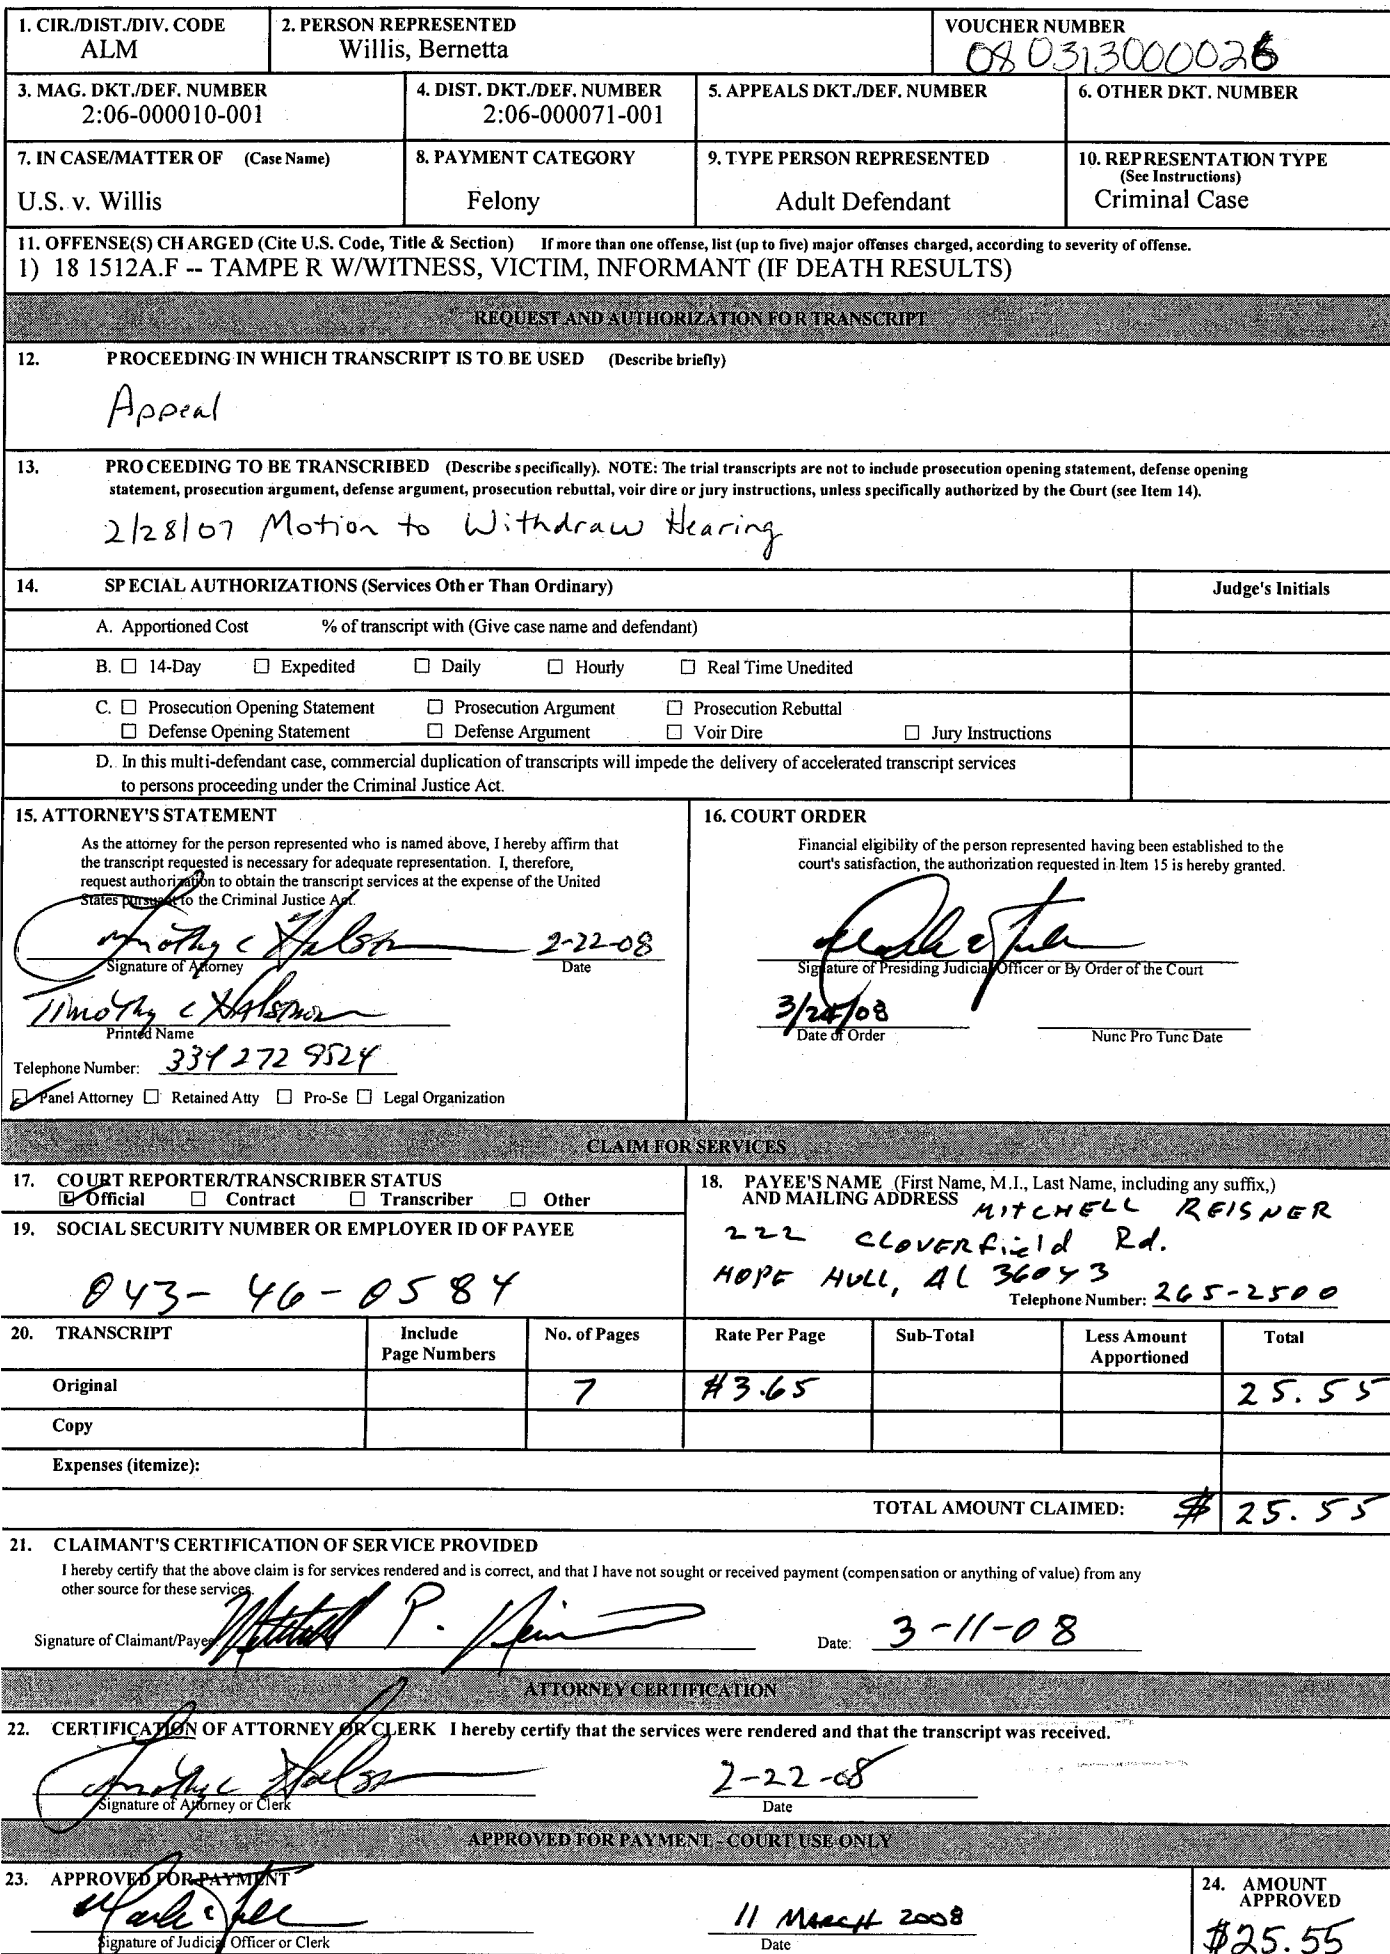 1. CIR./DIST./DIV. CODE
ALM
2. PERSON REPRESENTED
Willis, Bernetta
VOUCHER NUMBER
080313000026
3. MAG. DKT./DEF. NUMBER
2:06-000010-001
4. DIST. DKT./DEF. NUMBER
2:06-000071-001
5. APPEALS DKT./DEF. NUMBER
6. OTHER DKT. NUMBER
7. IN CASE/MATTER OF (Case Name)
U.S. v. Willis
8. PAYMENT CATEGORY
Felony
9. TYPE PERSON REPRESENTED
Adult Defendant
10. REPRESENTATION TYPE
(See Instructions)
Criminal Case
11. OFFENSE(S) CHARGED (Cite U.S. Code, Title & Section) If more than one offense, list (up to five) major offenses charged, according to severity of offense.
1) 18 1512A.F -- TAMPE R W/WITNESS, VICTIM, INFORMANT (IF DEATH RESULTS)
REQUEST AND AUTHORIZATION FOR TRANSCRIPT
12. PROCEEDING IN WHICH TRANSCRIPT IS TO BE USED (Describe briefly)
Appeal
13. PROCEEDING TO BE TRANSCRIBED (Describe specifically). NOTE: The trial transcripts are not to include prosecution opening statement, defense opening
statement, prosecution argument, defense argument, prosecution rebuttal, voir dire or jury instructions, unless specifically authorized by the Court (see Item 14).
2/28/07 Motion to Withdraw Hearing
14. SPECIAL AUTHORIZATIONS (Services Other Than Ordinary)
Judge's Initials
A. Apportioned Cost % of transcript with (Give case name and defendant)
B. ☐ 14-Day ☐ Expedited ☐ Daily ☐ Hourly ☐ Real Time Unedited
C. ☐ Prosecution Opening Statement ☐ Prosecution Argument ☐ Prosecution Rebuttal
☐ Defense Opening Statement ☐ Defense Argument ☐ Voir Dire ☐ Jury Instructions
D. In this multi-defendant case, commercial duplication of transcripts will impede the delivery of accelerated transcript services
to persons proceeding under the Criminal Justice Act.
15. ATTORNEY'S STATEMENT
As the attorney for the person represented who is named above, I hereby affirm that
the transcript requested is necessary for adequate representation. I, therefore,
request authorization to obtain the transcript services at the expense of the United
States pursuant to the Criminal Justice Act.
Timothy C Halstrom 2-22-08
Signature of Attorney Date
Timothy C Halstrom
Printed Name
Telephone Number: 334 272 9524
☑ Panel Attorney ☐ Retained Atty ☐ Pro-Se ☐ Legal Organization
16. COURT ORDER
Financial eligibility of the person represented having been established to the
court's satisfaction, the authorization requested in Item 15 is hereby granted.
Signature of Presiding Judicial Officer or By Order of the Court
3/24/08
Date of Order Nunc Pro Tunc Date
CLAIM FOR SERVICES
17. COURT REPORTER/TRANSCRIBER STATUS
☑ Official ☐ Contract ☐ Transcriber ☐ Other
18. PAYEE'S NAME (First Name, M.I., Last Name, including any suffix,)
AND MAILING ADDRESS MITCHELL REISNER
222 CLOVERfield Rd.
HOPE HULL, AL 36043
Telephone Number: 265-2500
19. SOCIAL SECURITY NUMBER OR EMPLOYER ID OF PAYEE
043-46-0584
20. TRANSCRIPT Include Page Numbers No. of Pages Rate Per Page Sub-Total Less Amount Apportioned Total
Original 7 $3.65 25.55
Copy
Expenses (itemize):
TOTAL AMOUNT CLAIMED: $ 25.55
21. CLAIMANT'S CERTIFICATION OF SERVICE PROVIDED
I hereby certify that the above claim is for services rendered and is correct, and that I have not sought or received payment (compensation or anything of value) from any
other source for these services.
Signature of Claimant/Payee Mitchell P. Reisner Date: 3-11-08
ATTORNEY CERTIFICATION
22. CERTIFICATION OF ATTORNEY OR CLERK I hereby certify that the services were rendered and that the transcript was received.
Timothy C Halstrom 2-22-08
Signature of Attorney or Clerk Date
APPROVED FOR PAYMENT - COURT USE ONLY
23. APPROVED FOR PAYMENT
11 MARCH 2008
Signature of Judicial Officer or Clerk Date
24. AMOUNT
APPROVED
$25.55